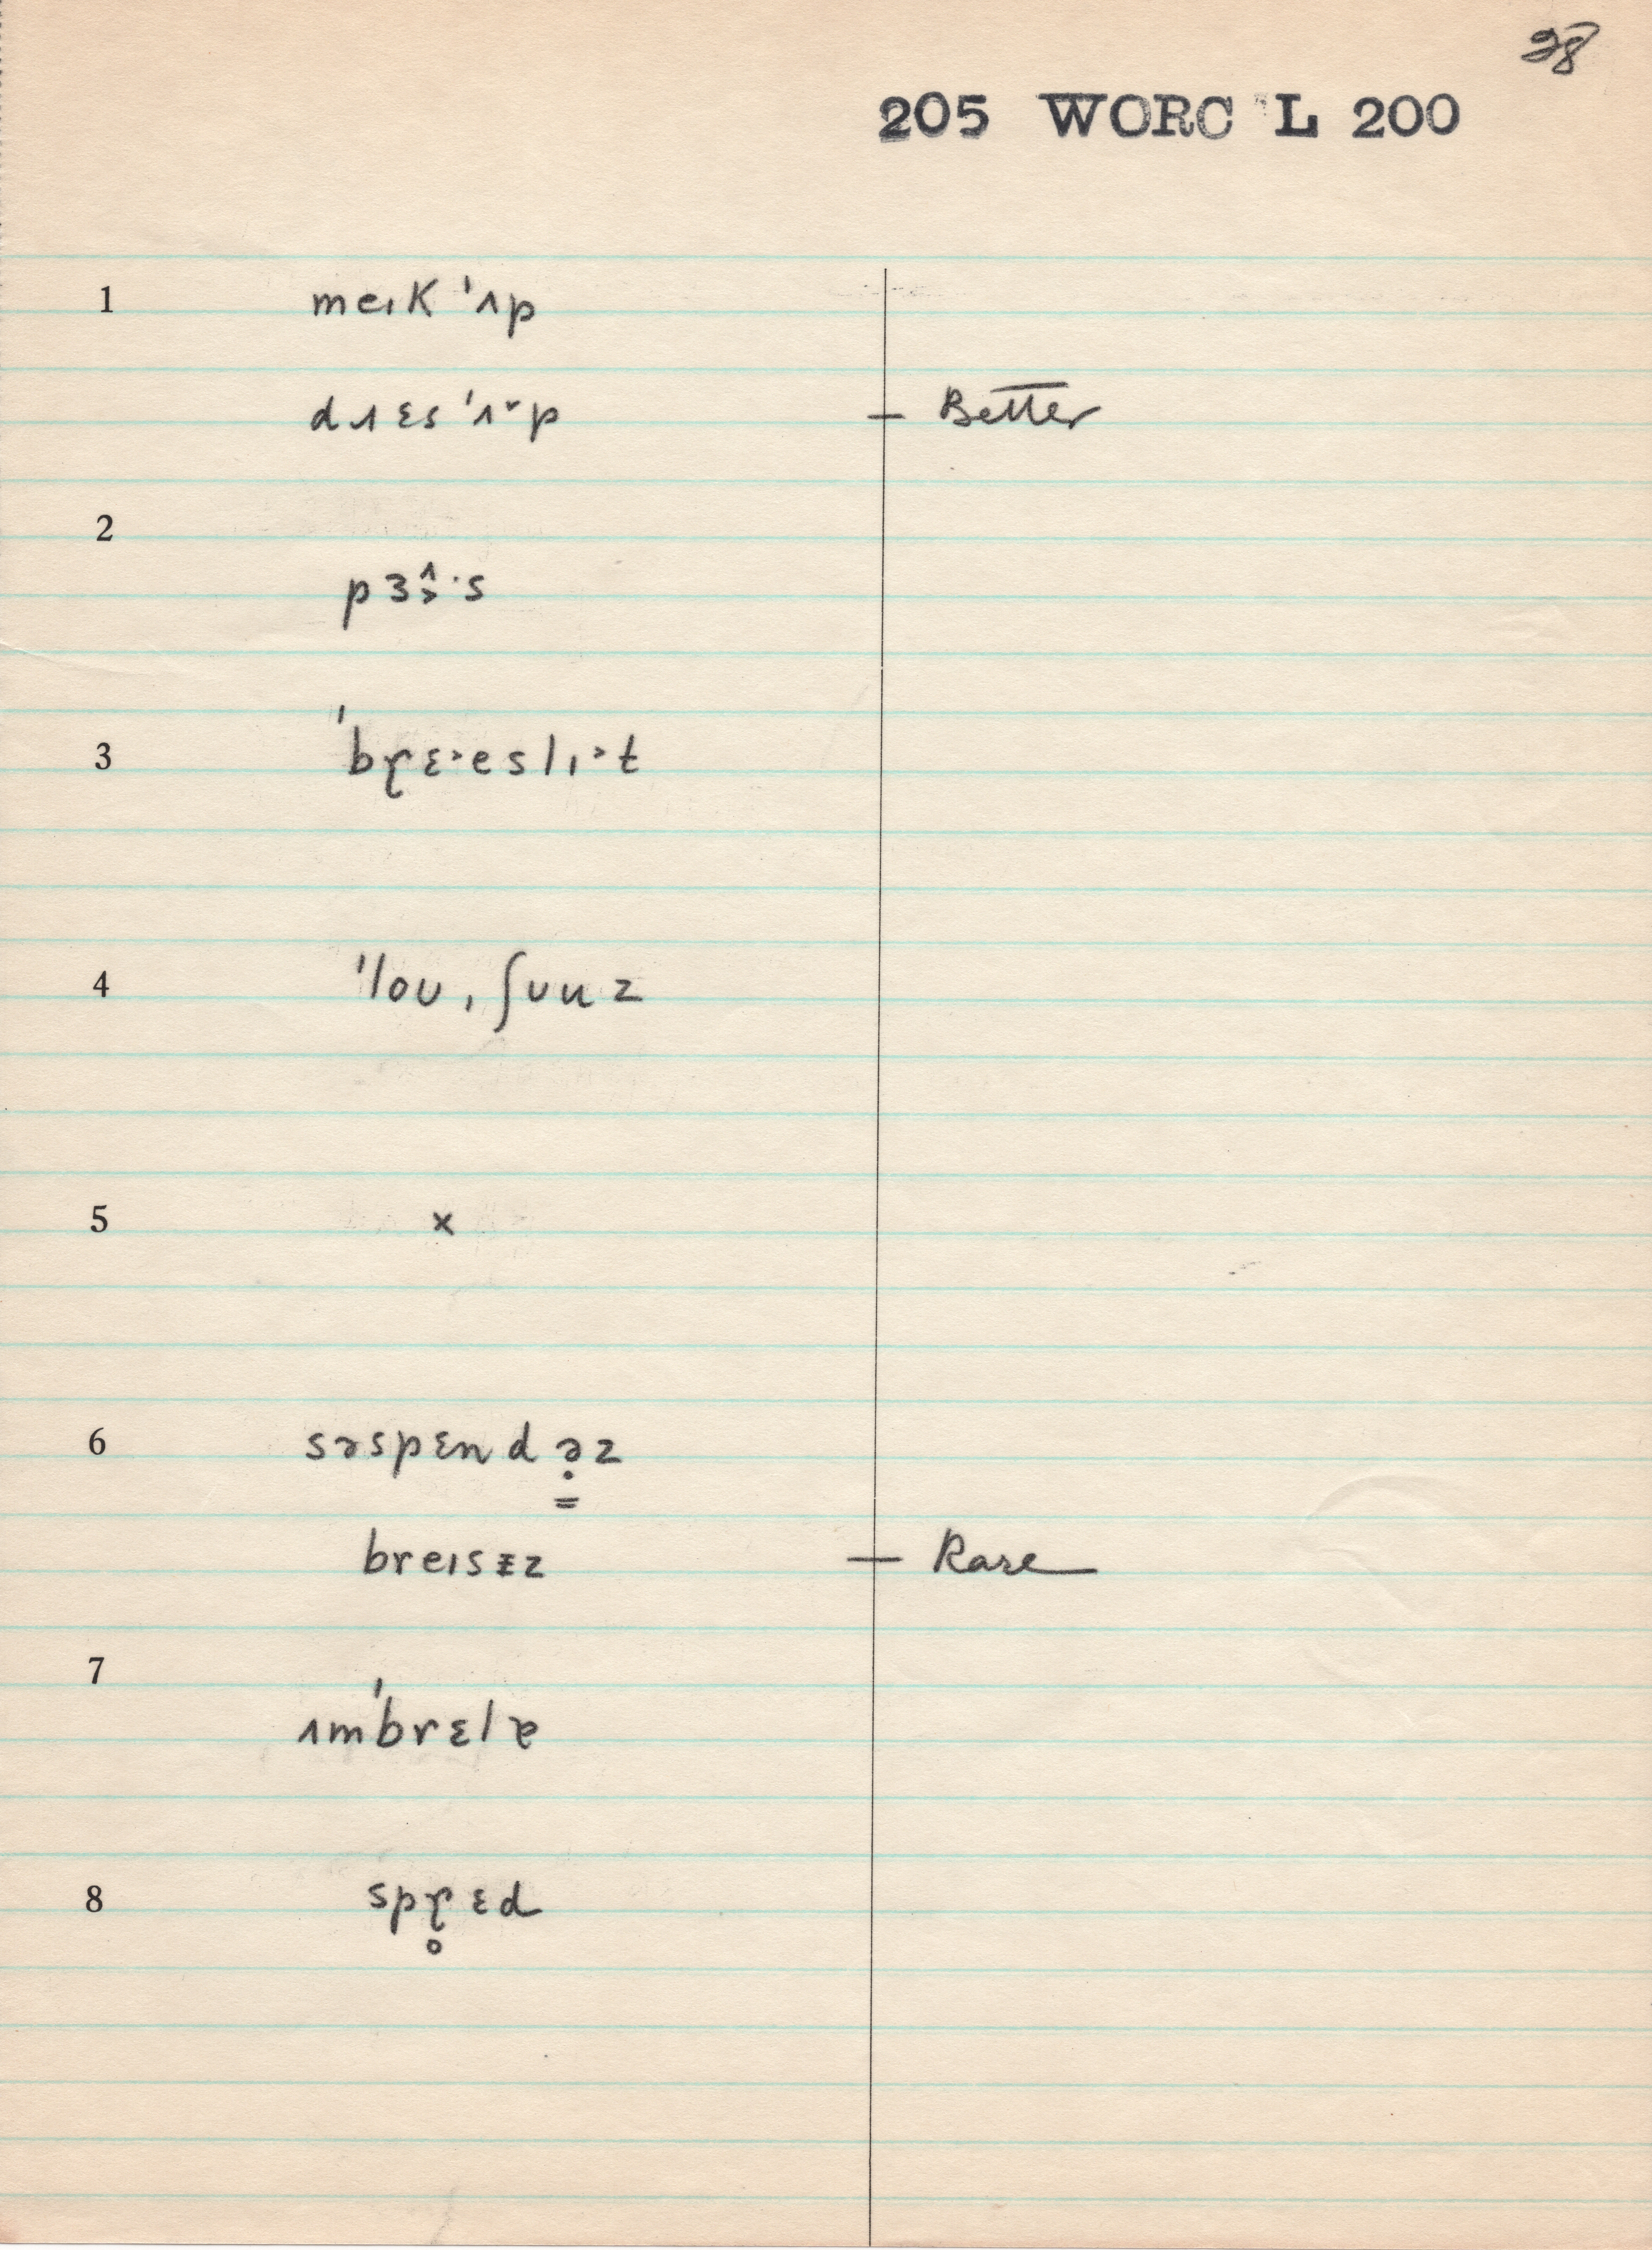 38
205 WORC L 200
1 meɪk ˈʌp
dɹɛsˈʌ˅p — Better
2
pɜ˄˒·s
3 ˈbɽɛ˃·eslɪ˃·t
4 ˈloʊˌʃuuz
5 x
6 səspɛndə̣z
breɪsɪz — Rare
7
ʌmˈbrɛlɐ
8 spɽ̥ɛd